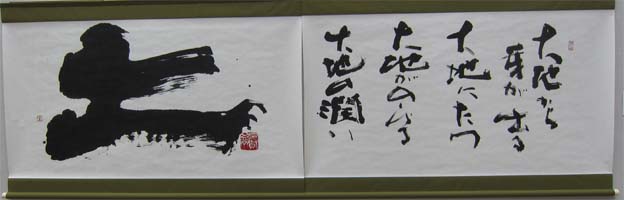 大地から
芽が出る
大地にたつ
大地が
大地の潤い
土